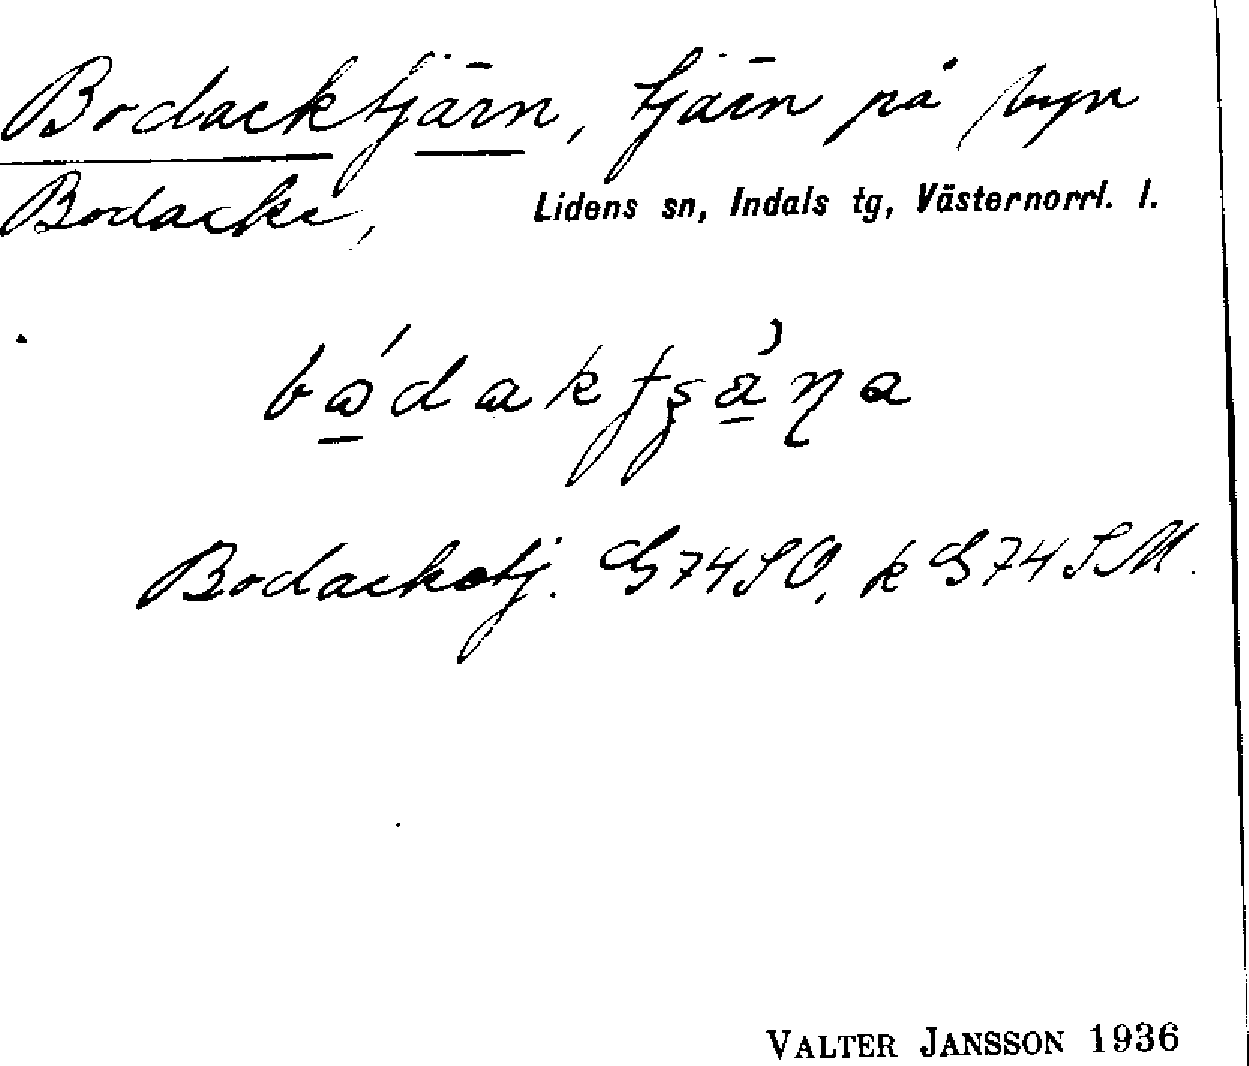 Bodacktjärn, tjärn på byn
Bodacke,
Lidens sn, Indals tg, Västernorrl. l.
Bodacketj. G74SO, k G74SM.
VALTER JANSSON 1936